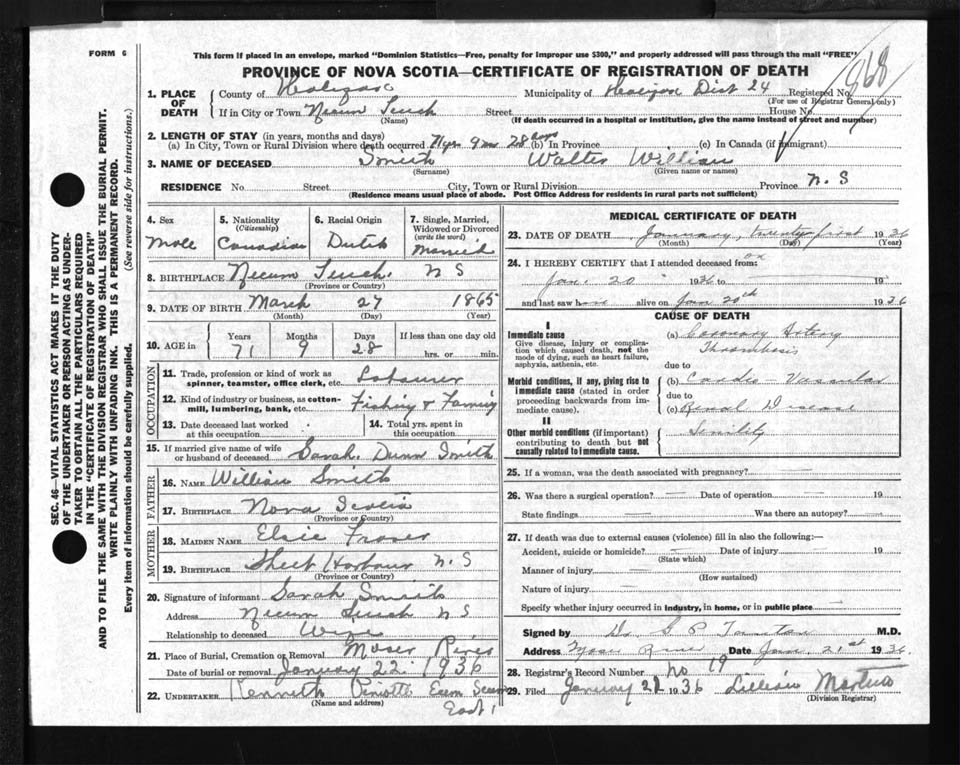 FORM 6
This form if placed in an envelope, marked "Dominion Statistics—Free, penalty for improper use $300," and properly addressed will pass through the mail "FREE"
868
PROVINCE OF NOVA SCOTIA—CERTIFICATE OF REGISTRATION OF DEATH
1. PLACE OF DEATH
County of Halifax Municipality of Halifax Dist 24 Registered No.
(For use of Registrar General only)
If in City or Town Necum Teuch Street House No.
(Name) (If death occurred in a hospital or institution, give the name instead of street and number)
2. LENGTH OF STAY (in years, months and days)
(a) In City, Town or Rural Division where death occurred 71 yrs 9 m 28 days (b) In Province (c) In Canada (if immigrant)
3. NAME OF DECEASED Smith Walter William
(Surname) (Given name or names)
RESIDENCE No. Street City, Town or Rural Division Province N. S
(Residence means usual place of abode. Post Office Address for residents in rural parts not sufficient)
4. Sex
Male
5. Nationality
(Citizenship)
Canadian
6. Racial Origin
Dutch
7. Single, Married, Widowed or Divorced
(write the word)
Married
8. BIRTHPLACE Necum Teuch. N S
(Province or Country)
9. DATE OF BIRTH March 27 1865
(Month) (Day) (Year)
10. AGE in
Years Months Days If less than one day old
71 9 28 hrs. or min.
OCCUPATION
11. Trade, profession or kind of work as spinner, teamster, office clerk, etc. Labourer
12. Kind of industry or business, as cotton-mill, lumbering, bank, etc. Fishing & Farming
13. Date deceased last worked at this occupation
14. Total yrs. spent in this occupation
15. If married give name of wife or husband of deceased Sarah. Dunn Smith
FATHER
16. NAME William Smith
17. BIRTHPLACE Nova Scotia
(Province or Country)
MOTHER
18. MAIDEN NAME Elsie Fraser
19. BIRTHPLACE Sheet Harbour N. S
(Province or Country)
20. Signature of informant Sarah Smith
Address Necum Teuch N S
Relationship to deceased Wife
21. Place of Burial, Cremation or Removal Moser River
Date of burial or removal January 22 1936
22. UNDERTAKER Kenneth Ecum Secum
(Name and address)
East
MEDICAL CERTIFICATE OF DEATH
23. DATE OF DEATH January, twenty first 1936
(Month) (Day) (Year)
24. I HEREBY CERTIFY that I attended deceased from: on
Jan. 20 1936 to 19
and last saw h alive on Jan 20th 1936
CAUSE OF DEATH
I
Immediate cause
Give disease, injury or complication which caused death, not the mode of dying, such as heart failure, asphyxia, asthenia, etc.
(a) Coronary Artery
Thrombosis
due to
Morbid conditions, if any, giving rise to immediate cause (stated in order proceeding backwards from immediate cause).
(b) Cardio-Vascular
due to
(c) Renal Disease
II
Other morbid conditions (if important) contributing to death but not causally related to immediate cause.
Senility
25. If a woman, was the death associated with pregnancy? —
26. Was there a surgical operation? — Date of operation — 19
State findings — Was there an autopsy? —
27. If death was due to external causes (violence) fill in also the following:—
Accident, suicide or homicide? — Date of injury — 19
(State which)
Manner of injury —
(How sustained)
Nature of injury —
Specify whether injury occurred in industry, in home, or in public place —
Signed by Dr G P M.D.
Address Moser River Date Jan. 21st 1936
28. Registrar's Record Number No 19
29. Filed January 21 1936 Lillian
(Division Registrar)
SEC. 46—VITAL STATISTICS ACT MAKES IT THE DUTY
OF THE UNDERTAKER OR PERSON ACTING AS UNDER-
TAKER TO OBTAIN ALL THE PARTICULARS REQUIRED
IN THE "CERTIFICATE OF REGISTRATION OF DEATH"
AND TO FILE THE SAME WITH THE DIVISION REGISTRAR WHO SHALL ISSUE THE BURIAL PERMIT.
WRITE PLAINLY WITH UNFADING INK. THIS IS A PERMANENT RECORD.
Every item of information should be carefully supplied. (See reverse side for instructions.)